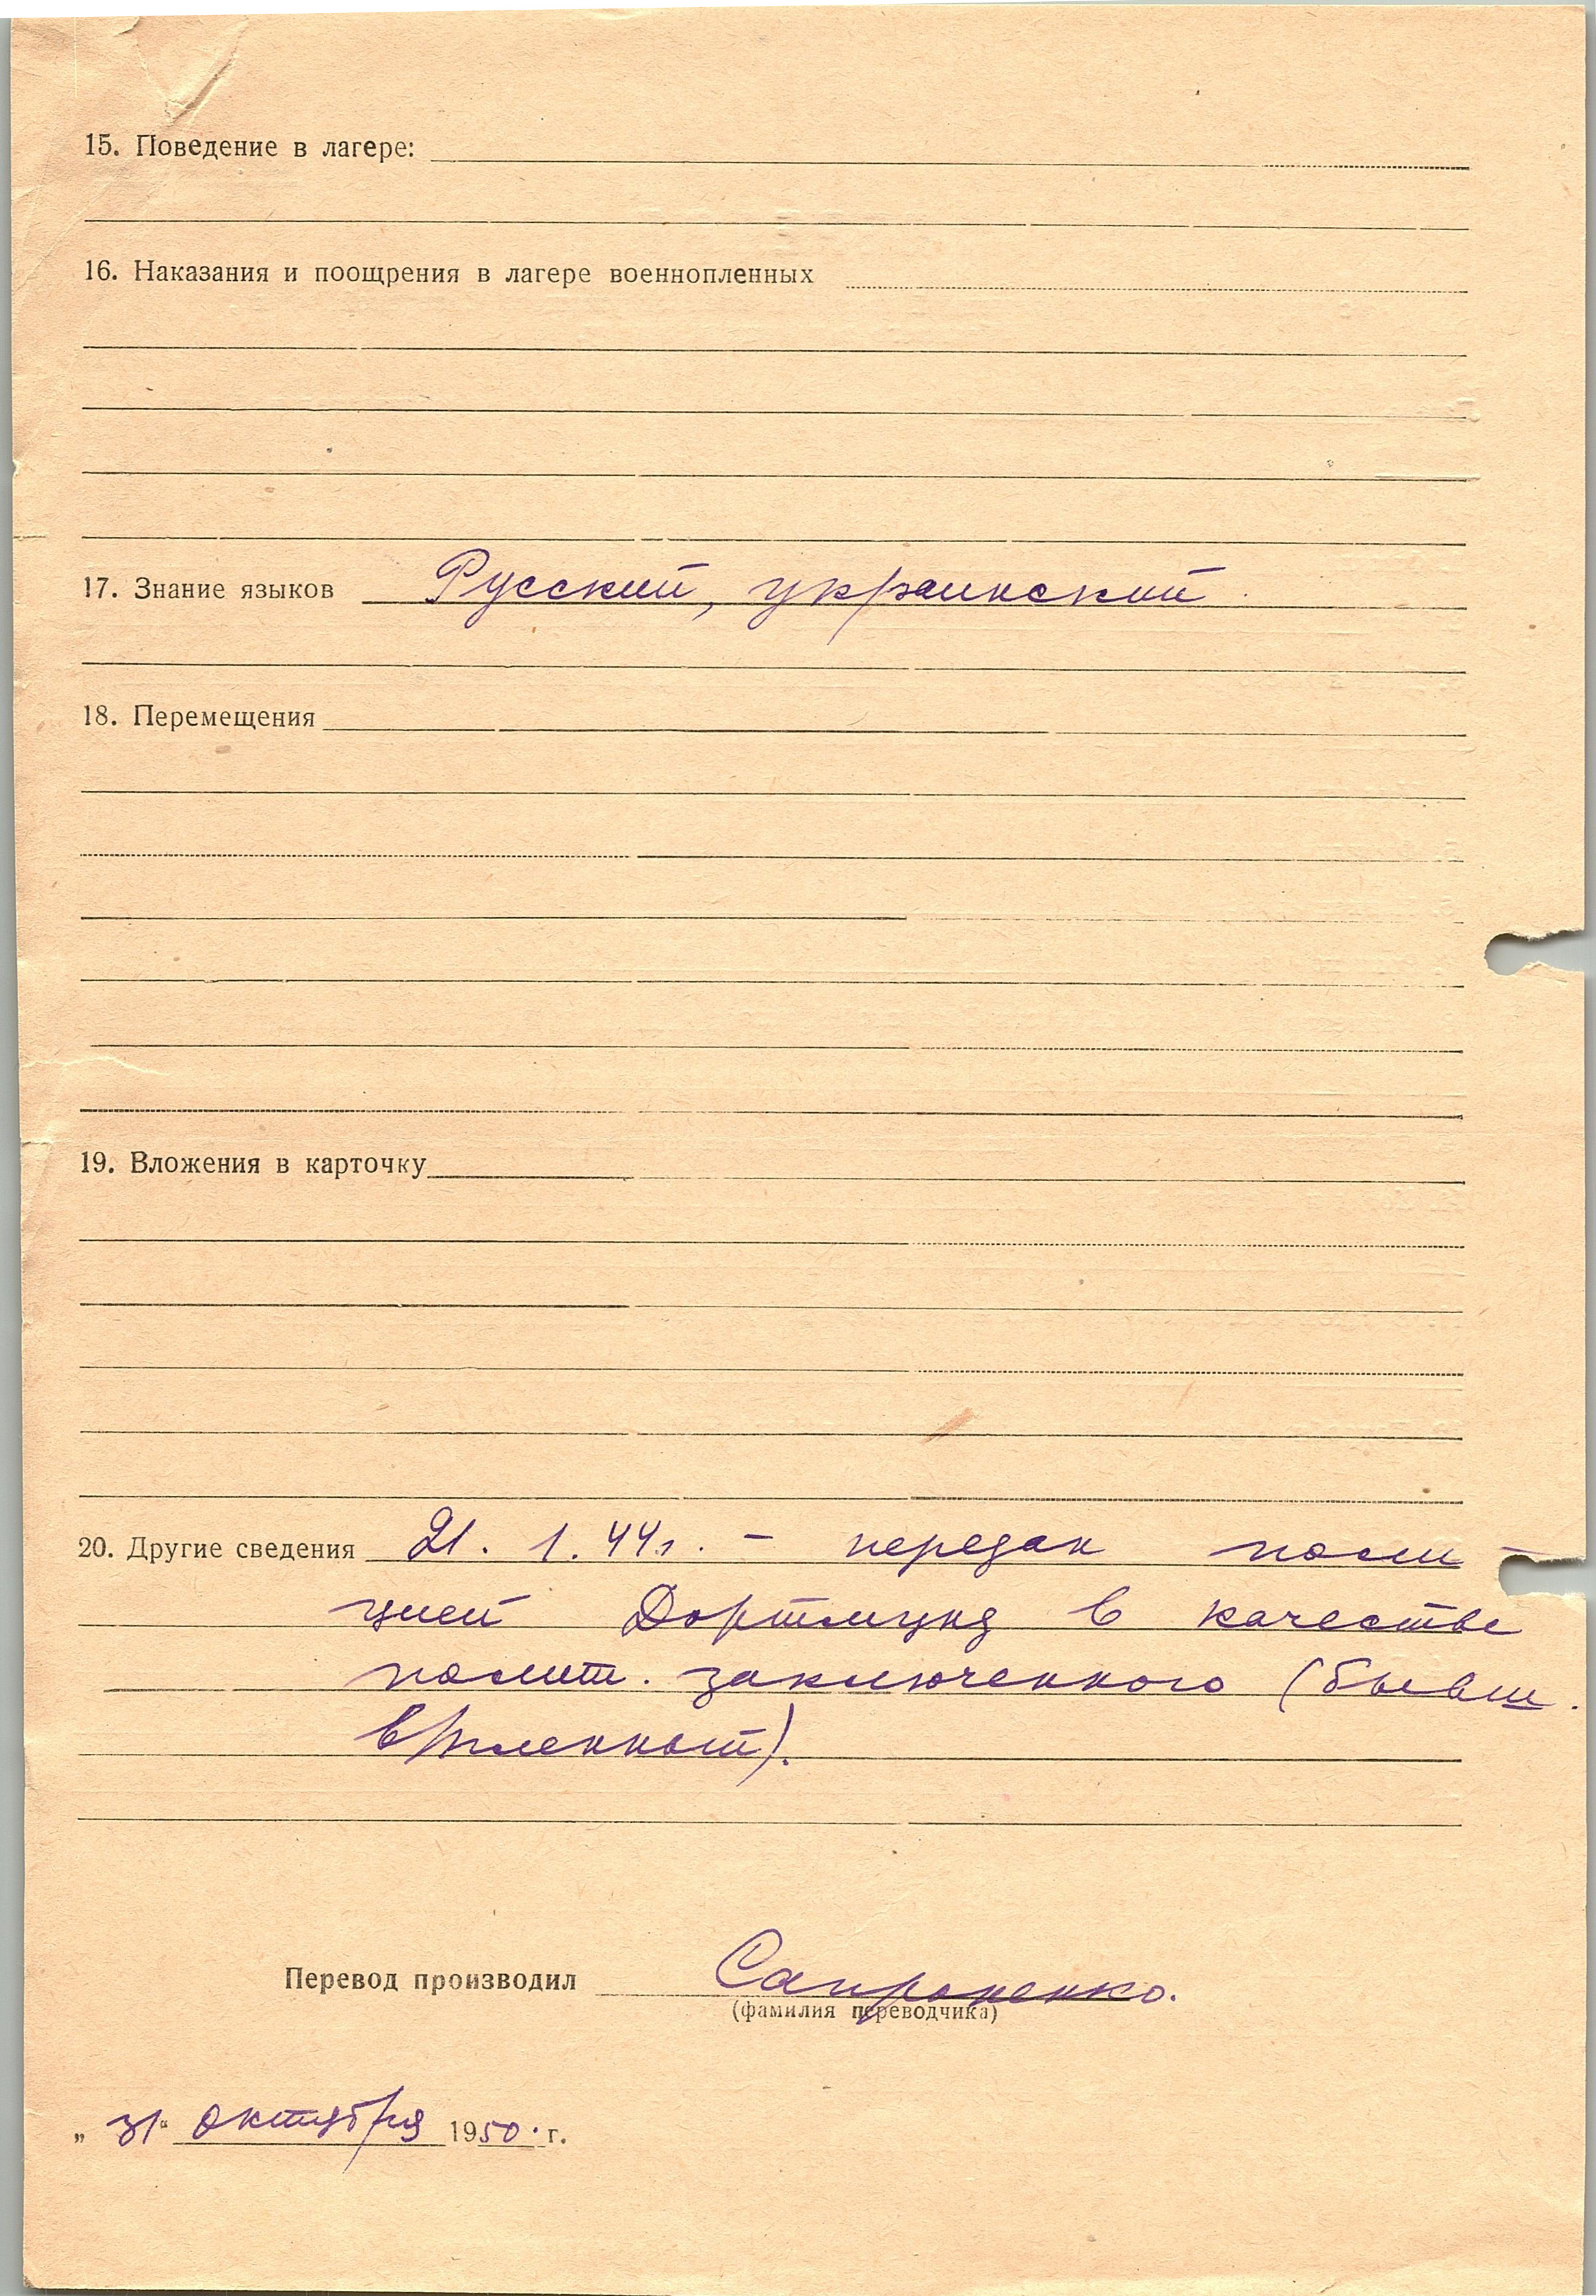 15. Поведение в лагере:
16. Наказания и поощрения в лагере военнопленных
17. Знание языков Русский, украинский.
18. Перемещения
19. Вложения в карточку
20. Другие сведения 21. 1. 44 г. – передан поли-
цией Дортмунд в качестве
полит. заключенного (бывш.
в/пленный).
Перевод производил Сапроненко.
(фамилия переводчика)
„31“ октября 1950 г.